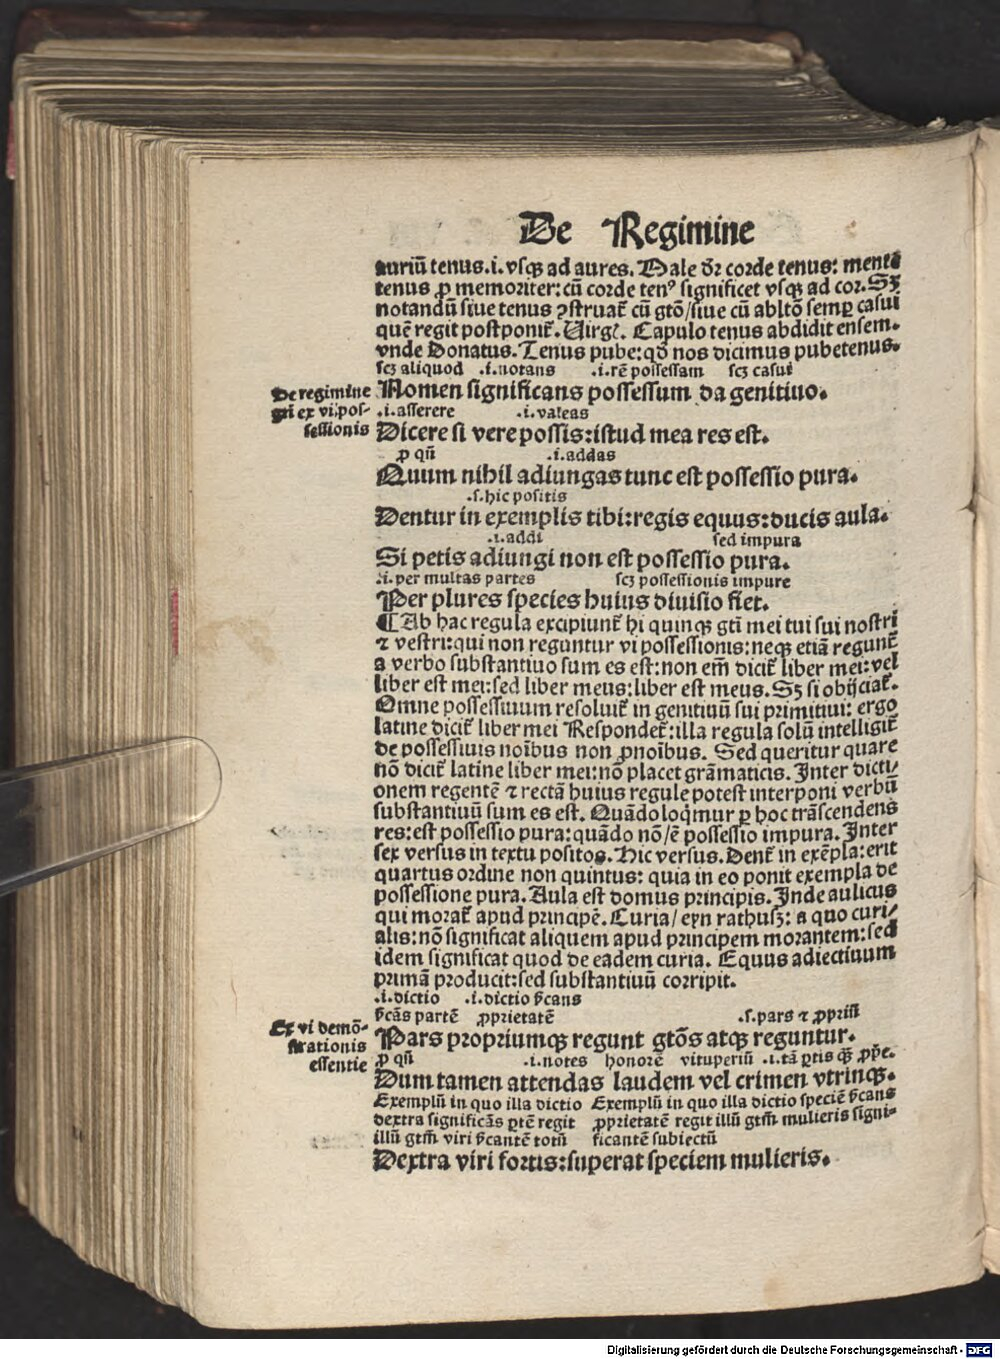 De Regimine
auriū tenus.i.vsqꝫ ad aures. Male dr̄ corde tenus: mente
tenus ꝓ memoriter:cū corde tenꝰ significet vsqꝫ ad cor. Sꝫ
notandū siue tenus ꝯstruat᷑ cū gtō/siue cū abltō semꝑ casui
quē regit postponit᷑. Virgĺ. Capulo tenus abdidit ensem.
vnde Donatus. Tenus pube:qđ nos dicimus pubetenus.
scꝫ aliquod .i.notans .i.rē possessam scꝫ casui
De regimine
gti ex vi pos-
sessionis
Nomen significans possessum da genitiuo.
.i.asserere .i.valeas
Dicere si vere possis:istud mea res est.
ꝓ qñ .i.addas
Quum nihil adiungas tunc est possessio pura.
.s.hic positis
Dentur in exemplis tibi:regis equus:ducis aula.
.i.addi sed impura
Si petis adiungi non est possessio pura.
.i.per multas partes scꝫ possessionis impure
Per plures species huius diuisio fiet.
¶ Ab hac regula excipiunt᷑ hi quinqꝫ gti mei tui sui nostri
⁊ vestri:qui non reguntur vi possessionis:neqꝫ etiā regunt᷑
a verbo substantiuo sum es est:non em̄ dicit᷑ liber mei:vel
liber est mei:sed liber meus:liber est meus. Sꝫ si obijciat᷑.
Omne possessiuum resoluit᷑ in genitiuū sui primitiui: ergo
latine dicit᷑ liber mei Respondet᷑:illa regula solū intelligit᷑
de possessiuis noībus non ꝓnoībus. Sed queritur quare
nō dicit᷑ latine liber mei:nō placet grāmaticis. Inter dicti/
onem regentē ⁊ rectā huius regule potest interponi verbū
substantiuū sum es est. Quādo loqͥmur ꝑ hoc trāscendens
res:est possessio pura:quādo nō/ē possessio impura. Inter
sex versus in textu positos. Hic versus. Dent᷑ in exēpla:erit
quartus ordine non quintus: quia in eo ponit exempla de
possessione pura. Aula est domus principis. Inde aulicus
qui morat᷑ apud principē. Curia/ eyn rathusꝫ: a quo curi/
alis:nō significat aliquem apud principem morantem:sed
idem significat quod de eadem curia. Equus adiectiuum
primā producit:sed substantiuū corripit.
.i.dictio .i.dictio s̄cans
s̄cās partē ꝓprietatē .s.pars ⁊ ꝓpriū
Ex vi demō-
strationis
essentie
Pars propriumqꝫ regunt gtōs atqꝫ reguntur.
ꝓ qñ .i.notes honorē vituperiū .i.tā ꝑtis qꝫ ꝓpē.
Dum tamen attendas laudem vel crimen vtrinqꝫ.
Exemplū in quo illa dictio Exemplū in quo illa dictio speciē s̄cans
dextra significās ꝑtē regit ꝓprietatē regit illū gtm̄ mulieris signi-
illū gtm̄ viri s̄cantē totū ficantē subiectū
Dextra viri fortis:superat speciem mulieris.
Digitalisierung gefördert durch die Deutsche Forschungsgemeinschaft - DFG